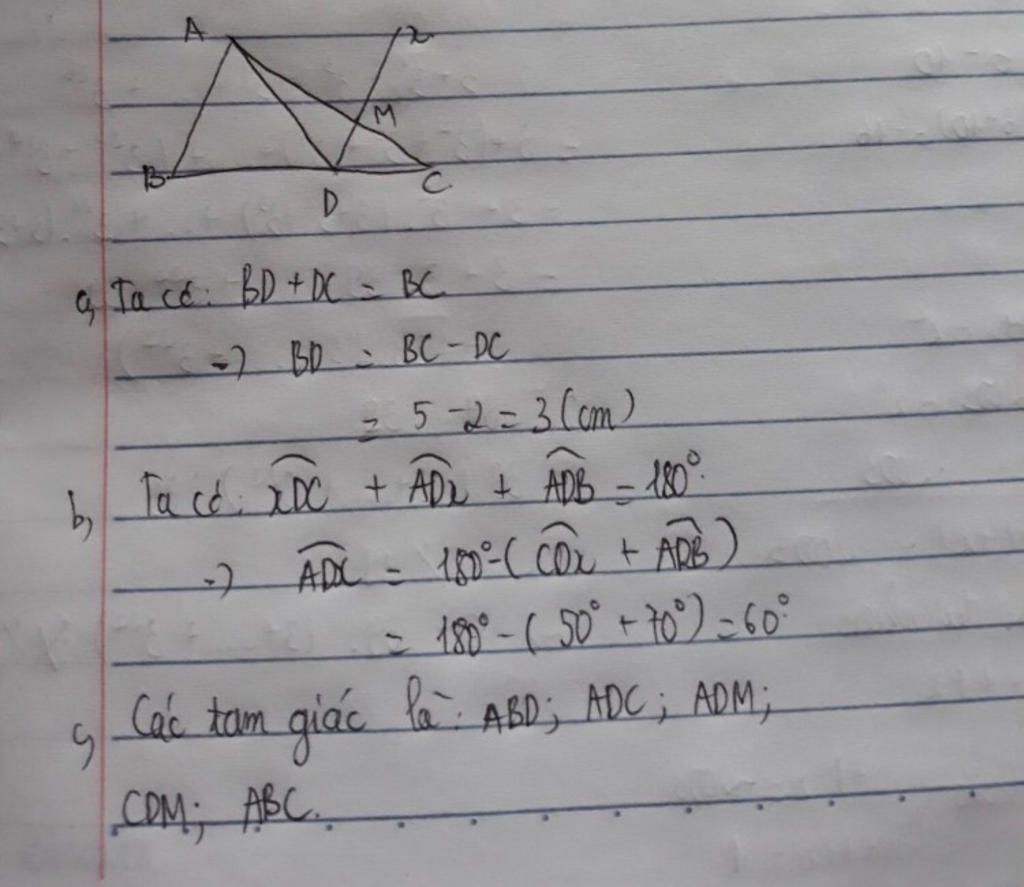 A x
M
B D C
a, Ta có: BD + DC = BC
-> BD = BC - DC
= 5 - 2 = 3 (cm)
b, Ta có: xDC + ADx + ADB = 180°.
-> ADx = 180° - ( CDx + ADB )
= 180° - ( 50° + 70° ) = 60°
c, Các tam giác là: ABD; ADC; ADM;
CDM; ABC.